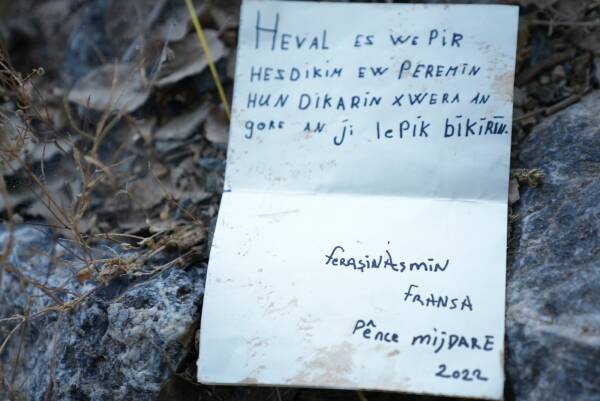 HEVAL ES WE PİR
HESDIKIM EW PEREMIN
HUN DIKARIN XWERA AN
GORE AN Jİ lEPİK BİKİRİN.
feraşin Asmin
fRANSA
PêNce mijDARE
2022